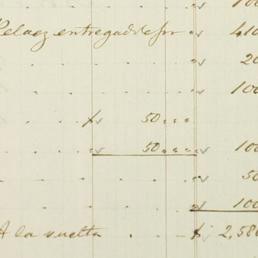 100
Pelaez entregado por 410
20
100
$ 50
50 100
50
100
A la vuelta $ 2,580